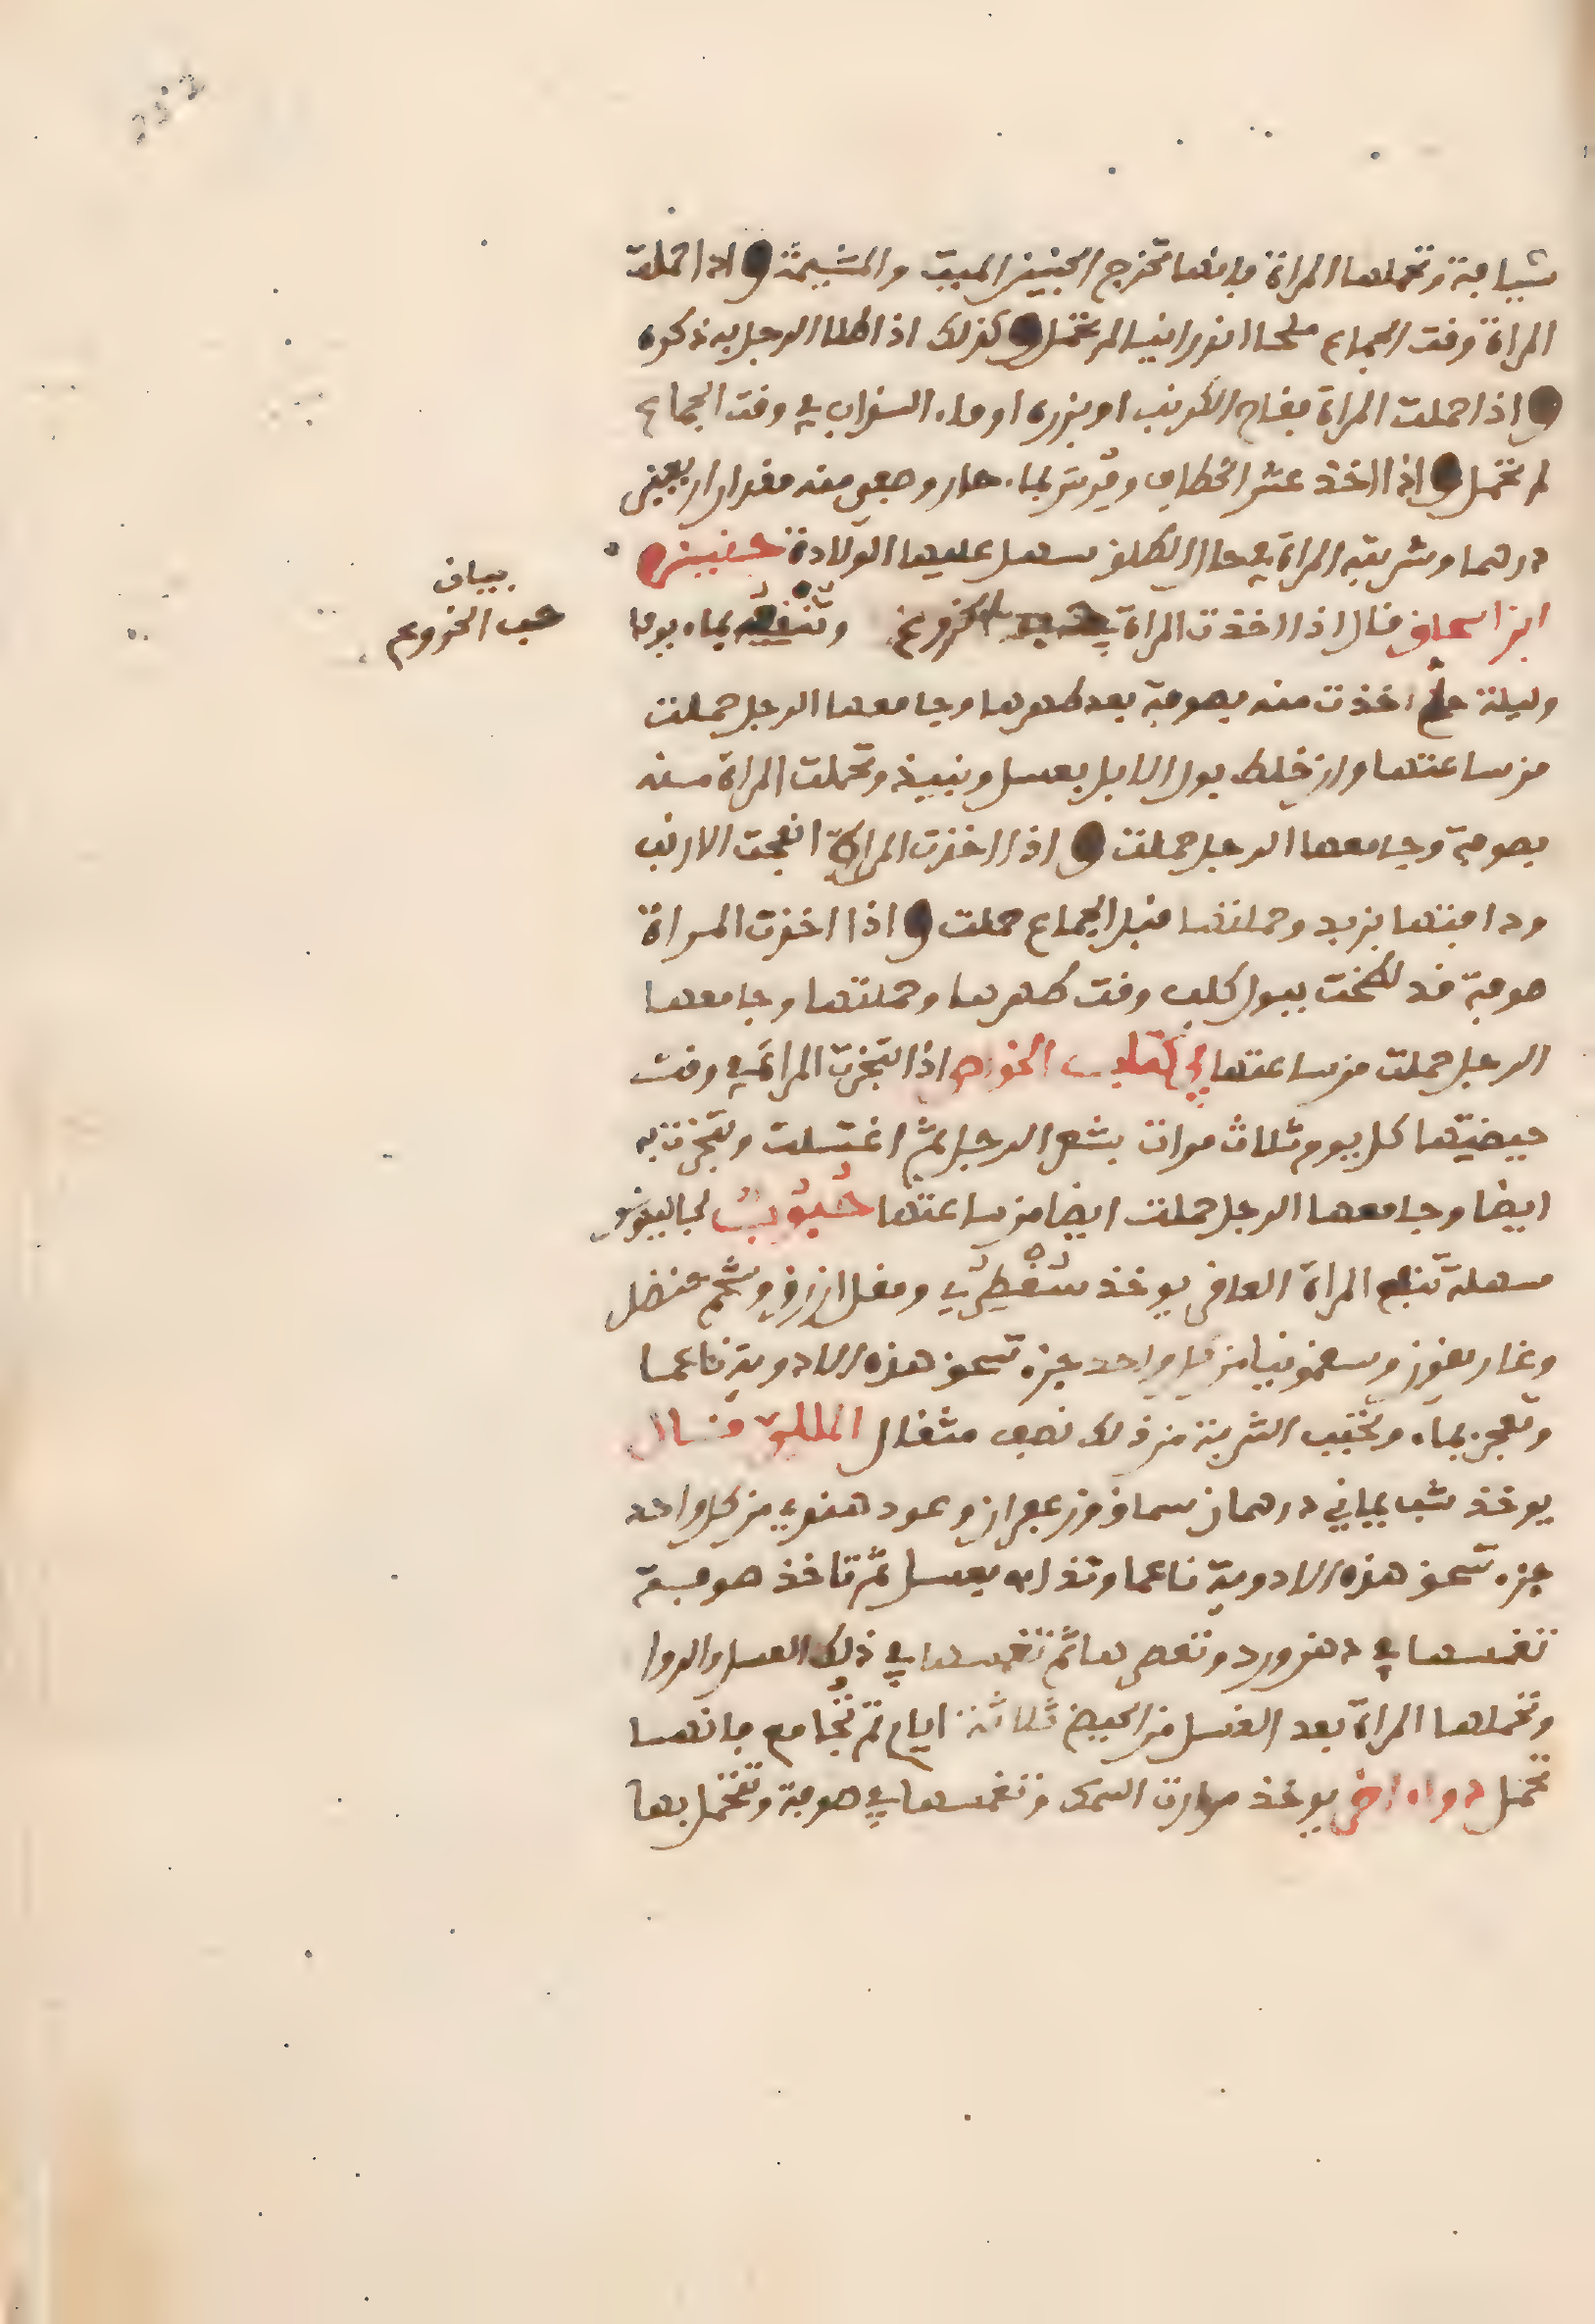 شيافة وتحملها المراة فانها تخرج الجنين الميت والمشيمة واذا حملت
المراة وقت الجماع ملحا اندرانيا لم تحمل وكذلك اذا طلا الرجل به ذكره
واذا حملت المراة بفاح الكرنب او بزره او ماء السذاب في وقت الجماع
لم تحمل واذا اخذ عش الخطاف ومرس بماء حار وصفى منه مقدار اربعين
درهما وشربته المراة في حال الطلق سهل عليها الولادة حنين
ابن اسحاق قال اذا اخذت المراة الخروع وتنقعه بماء يوما
وليلة اخذت منه بصوفة بعد طهرها وجامعها الرجل حملت
من ساعتها وان خلط بول الابل بعسل ونبيذ وتحملت المراة منه
بصوفة وجامعها الرجل حملت واذا اخذت المراة انفحت الارنب
ودافتها بزبد وحملتها قبل الجماع حملت واذا اخذت المراة
صوفة قد لطخت ببول كلب وقت طهرها وحملتها وجامعها
الرجل حملت من ساعتها في كتاب الخواص اذا تبخرت المراة في وقت
حيضتها كل يوم ثلاث مرات بشعر الرجل ثم اغتسلت وتبخرت به
ايضا وجامعها الرجل حملت ايضا من ساعتها حبوب لجالينوس
مسهلة تنفع المراة العاقر يوخذ سقطري ومقل ازرق وشحم حنظل
وغاريقون وسقمونيا من كل واحد جزء تسحق هذه الادوية ناعما
وتعجن بماء وتحبب الشربة من ذلك نصف مثقال قال
يوخذ شب يماني درهمان سماق وزعفران وعود هندي من كل واحد
جزء تسحق هذه الادوية ناعما وتذاب بعسل ثم تاخذ صوفة
تغمسها في دهن ورد وتعصرها ثم تغمسها في ذلك العسل والدوا
وتحملها المراة بعد الغسل من الحيض ثلاثة ايام ثم تجامع فانها
تحمل دواء اخر يوخذ مرارة السمك وتغمسها في صوفة وتتحمل بها
بيان
حب الخروع